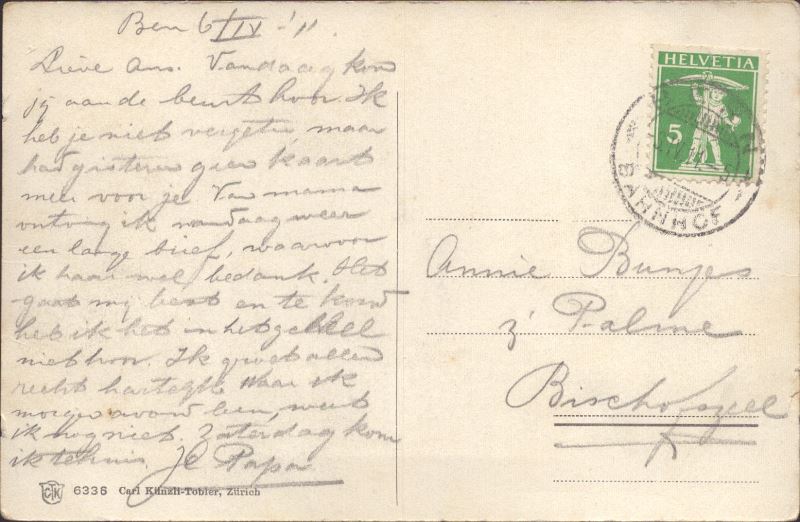 Bern 6/IV - '11.
Lieve Ans. Vandaag kom
jij aan de beurt hoor. Ik
heb je niet vergeten, maar
had gisteren geen kaart
meer voor je. Van mama
ontving ik vandaag weer
een lange brief, waarvoor
ik haar wel bedank. Het
gaat mij best en te koud
heb ik het in het geheel
niet hoor. Ik groet allen
recht hartelijk. Waar ik
morgen avond ben, weet
ik nog niet. Zaterdag kom
ik tehuis. Je Papa
6336 Carl Künzli-Tobler, Zürich
HELVETIA
5
BAHNHOF
Annie Bunjes
z' Palme
Bischofszell